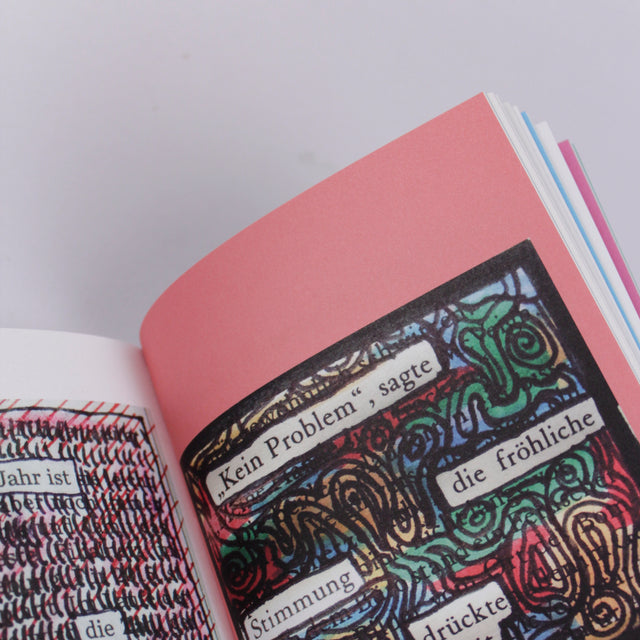 Jahr ist
die
„Kein Problem“, sagte
die fröhliche
Stimmung
drückte